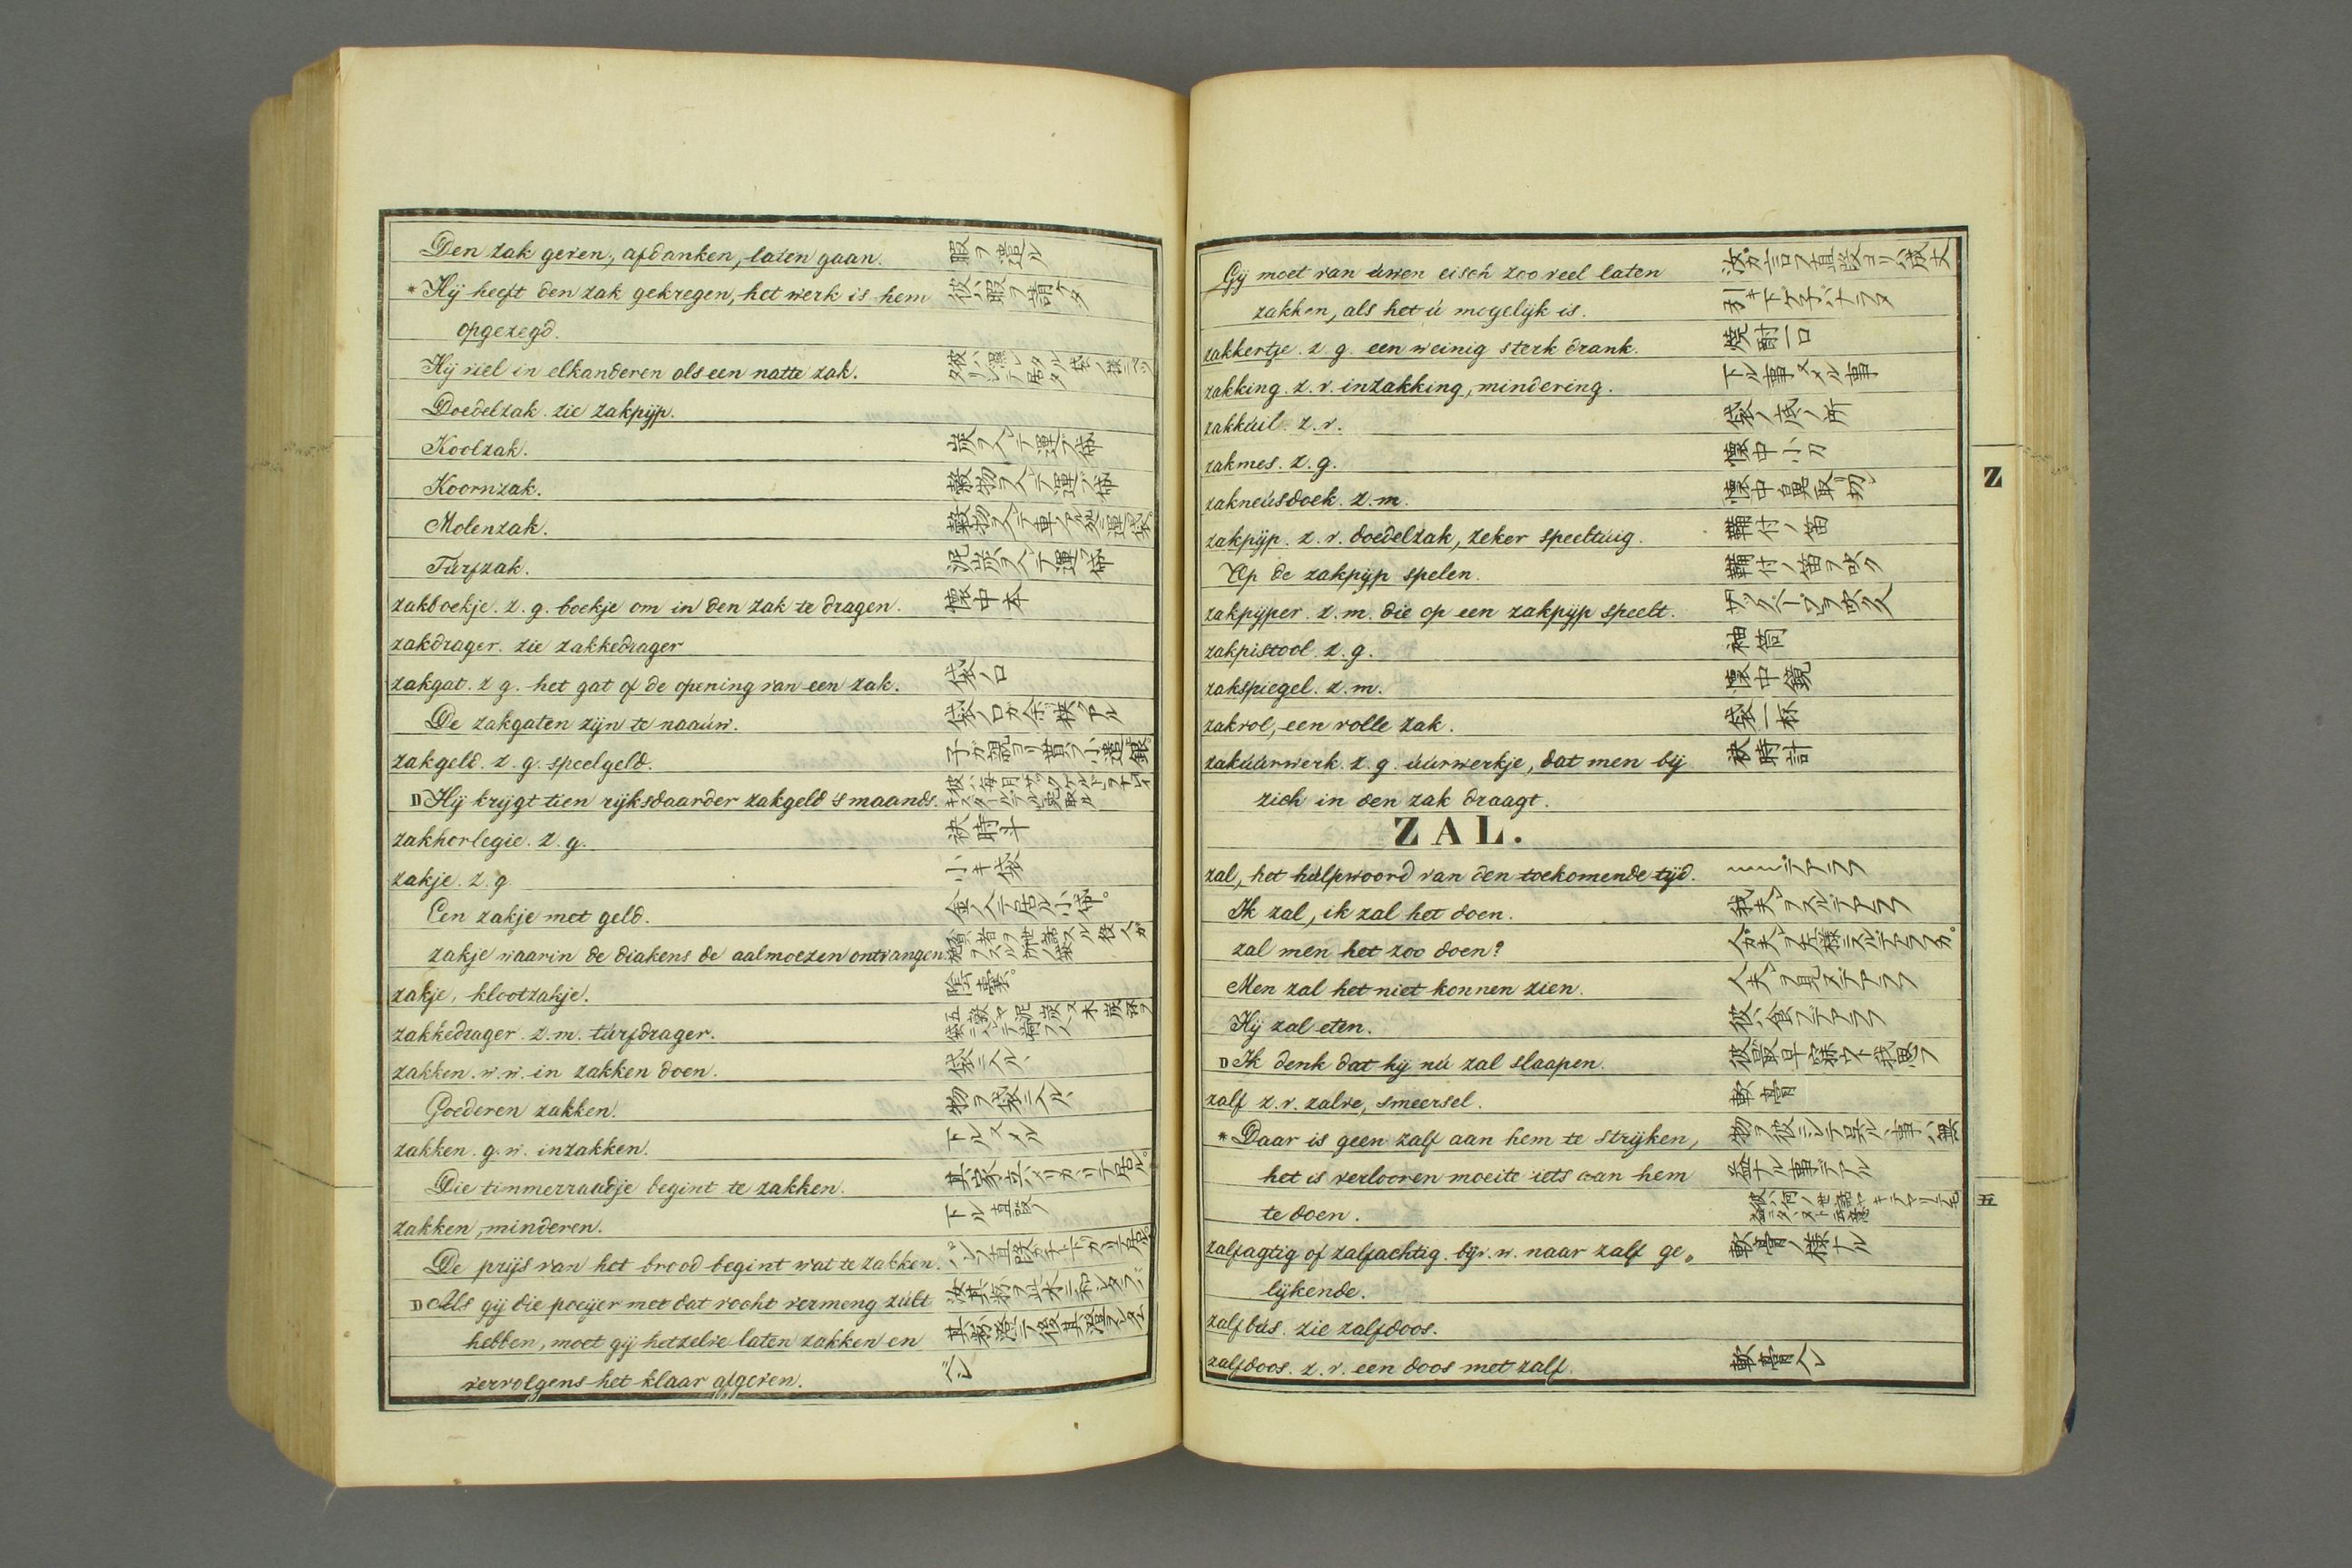 Den zak geven, afdanken, laten gaan. 暇ヲ遣ル
* Hij heeft den zak gekregen, het werk is hem 彼ハ暇ヲ請ケタ
opgezegd.
Hij viel in elkanderen als een natte zak.
Doedelzak. zie zakpijp.
Koolzak. 炭ヲ入レテ運ブ帒
Koornzak. 穀物ヲ入レテ運ブ帒
Molenzak.
Turfzak. 泥炭ヲ入レテ運ブ帒
zakboekje. z. g. boekje om in den zak te dragen. 懐中本
zakdrager. zie zakkedrager
zakgat. z g. het gat of de opening van een zak. 袋ノ口
De zakgaten zijn te naaúw. 袋ノ口ガ余リ狭クアル
zakgeld. z. g. speelgeld. 子ガ親ヨリ貰フ小遣銀
D Hij krijgt tien rijksdaarder zakgeld 's maands.
zakhorlegie. z. g. 袂時斗
zakje. z. g. 小キ袋
Een zakje met geld. 金ノ入テ居ル小帒。
zakje waarin de diakens de aalmoezen ontvangen.
zakje, klootzakje. 陰嚢。
zakkedrager. z. m. túrfdrager.
zakken. w. w. in zakken doen. 袋ニ入ルヽ
Goederen zakken. 物ヲ袋ニ入ルヽ
zakken. g. w. inzakken. 下ル又メル
Die timmerraadje begint te zakken.
zakken, minderen. 下ル直段ノ
De prijs van het brood begint wat te zakken.
D Als gij die poeijer met dat vocht vermeng zúlt
hebben, moet gij hetzelve laten zakken en
vervolgens het klaar afgeven. ベシ
Gij moet van úwen eisch zoo veel laten
zakken, als het ú mogelijk is. 引キ下ケ子バナラヌ
zakkertje. z. g. een weinig sterk drank. 焼酎一口
zakking. z. v. inzakking, mindering. 下ル事又メル事
zakkúil. z. v. 袋ノ底ノ所
zakmes. z. g. 懐中小刀
zakneúsdoek. z. m. 懐中鼻取切レ
zakpijp. z. v. doedelzak, zeker speeltúig. 鞴付ノ笛
Op de zakpijp spelen. 鞴付ノ笛ヲ吹ク
zakpijper. z. m. die op een zakpijp speelt. ザックペイプヲ吹ク人
zakpistool. z. g. 袖筒
zakspiegel. z. m. 懐中鏡
zakvol, een volle zak. 袋一杯
zakúúrwerk. z. g. úúrwerkje, dat men bij 袂時計
zich in den zak draagt.
ZAL.
zal, het húlpwoord van den toekomende tijd. デアラフ
Ik zal, ik zal het doen. 我夫レヲスルデアラフ
zal men het zoo doen?
Men zal het niet konnen zien. 人夫レヲ見ズデアラフ
Hij zal eten. 彼ハ食フデアラフ
D Ik denk dat hij nú zal slaapen. 彼最早寐ウト我思フ
zalf z. v. zalve, smeersel. 軟膏
* Daar is geen zalf aan hem te strijken,
het is verlooren moeite iets aan hem 益ナル事デアル
te doen.
zalfagtig of zalfachtig. bijv. w. naar zalf ge„ 軟膏ノ様ナル
lijkende.
zalfbús. zie zalfdoos.
zalfdoos. z. v. een doos met zalf. 軟膏入レ
Z
五